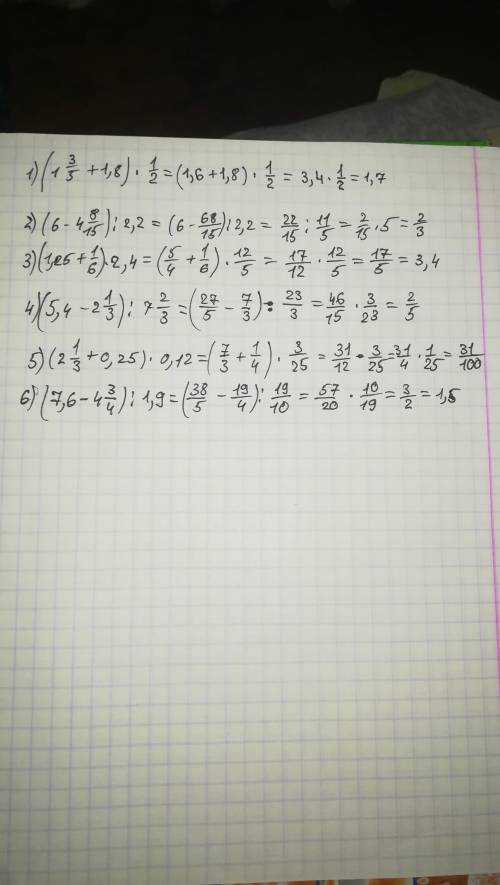 1) (1 3/5 + 1,8) · 1/2 = (1,6 + 1,8) · 1/2 = 3,4 · 1/2 = 1,7
2) (6 - 4 8/15) : 2,2 = (6 - 68/15) : 2,2 = 22/15 : 11/5 = 2/15 · 5 = 2/3
3) (1,25 + 1/6) · 2,4 = (5/4 + 1/6) · 12/5 = 17/12 · 12/5 = 17/5 = 3,4
4) (5,4 - 2 1/3) : 7 2/3 = (27/5 - 7/3) : 23/3 = 46/15 · 3/23 = 2/5
5) (2 1/3 + 0,25) · 0,12 = (7/3 + 1/4) · 3/25 = 31/12 · 3/25 = 31/4 · 1/25 = 31/100
6) (7,6 - 4 3/4) : 1,9 = (38/5 - 19/4) : 19/10 = 57/20 · 10/19 = 3/2 = 1,5